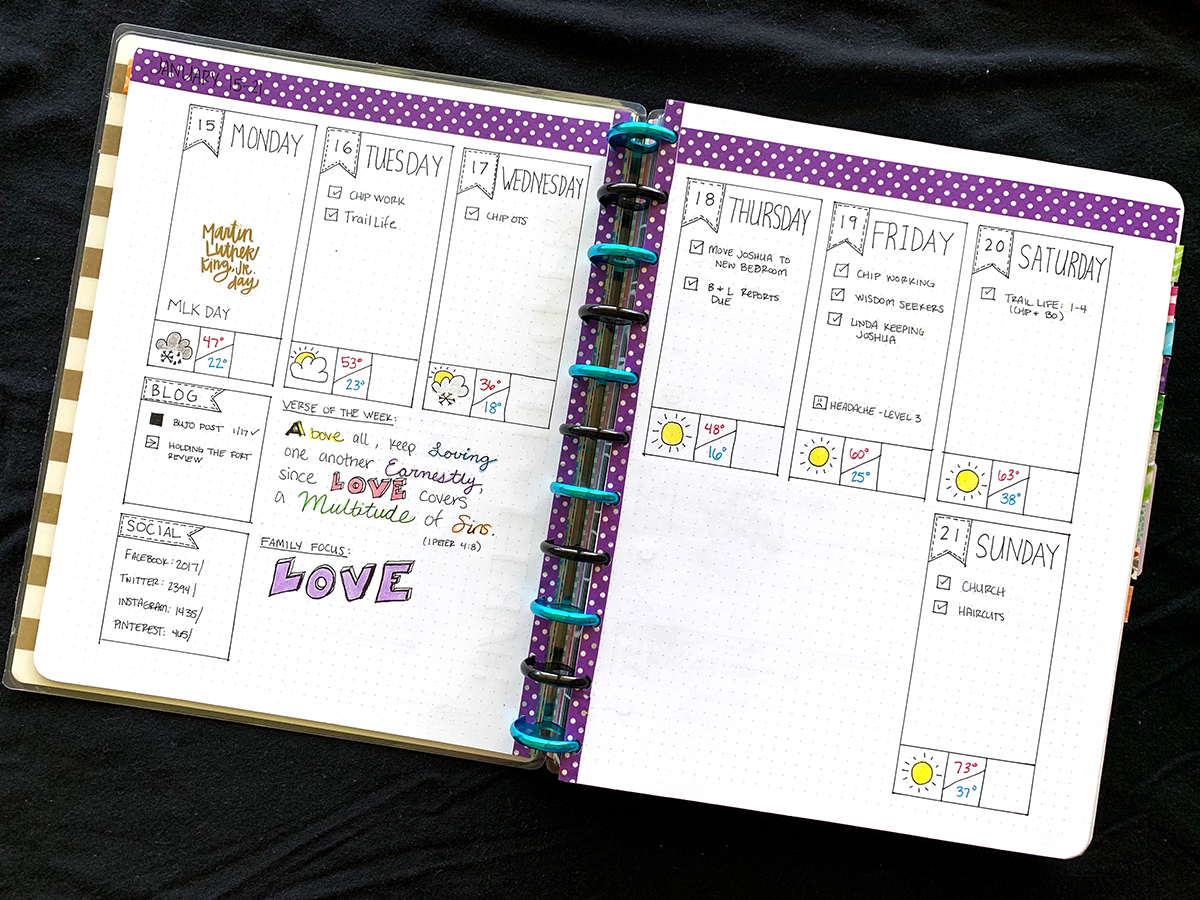 JANUARY 15-21
15 MONDAY
Martin
Luther
King, Jr.
day
MLK DAY
47°
22°
16 TUESDAY
CHIP WORK
Trail Life
53°
23°
17 WEDNESDAY
CHIP OTS
36°
18°
BLOG
BUJO POST 1/17
HOLDING THE FORT
REVIEW
SOCIAL
FACEBOOK: 2017/
TWITTER: 2394/
INSTAGRAM: 1435/
PINTEREST: 465/
VERSE OF THE WEEK:
Above all, keep Loving
one another Earnestly,
since LOVE covers
a Multitude of Sins.
(1 PETER 4:8)
FAMILY FOCUS:
LOVE
18 THURSDAY
MOVE JOSHUA TO
NEW BEDROOM
B & L REPORTS
DUE
48°
16°
19 FRIDAY
CHIP WORKING
WISDOM SEEKERS
LINDA KEEPING
JOSHUA
HEADACHE - LEVEL 3
60°
25°
20 SATURDAY
TRAIL LIFE: 1-4
(CHIP & BO)
63°
38°
21 SUNDAY
CHURCH
HAIRCUTS
73°
37°